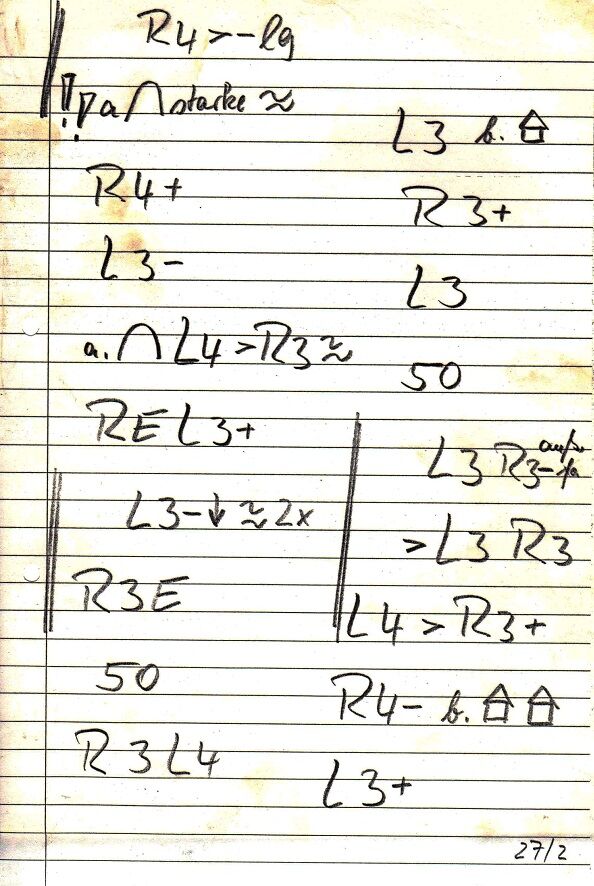 R4 > - lg
!! Pa ∩ starke ≈
R4+
L3-
a. ∩ L4 > R3 ≈
RE L3+
L3-↓ ≈ 2x
R3E
50
R3L4
L3 b. ⌂
R3+
L3
50
L3 R3-
> L3 R3
L4 > R3+
R4- b. ⌂ ⌂
L3+
27/2